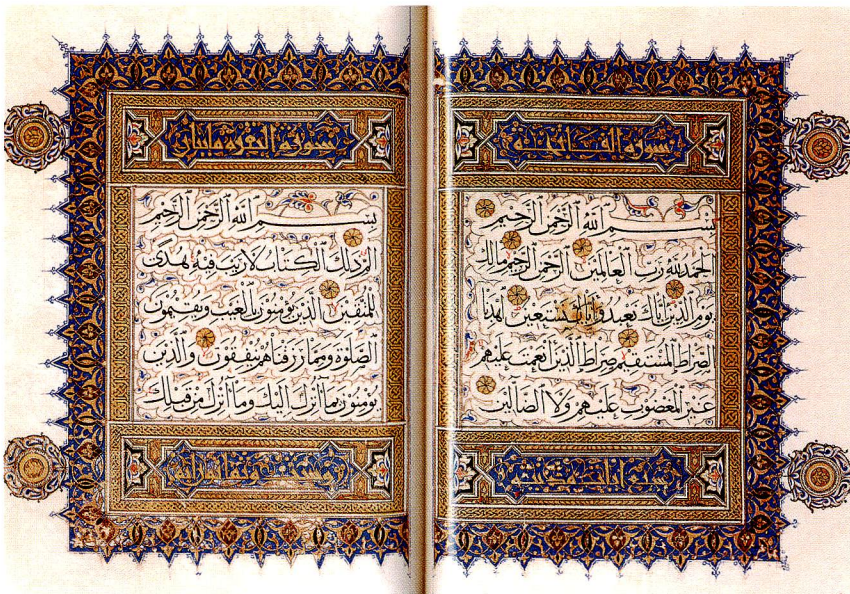 سورة الفاتحة
بسم الله الرحمن الرحيم
الحمد لله رب العالمين الرحمن الرحيم مالك
يوم الدين اياك نعبد واياك نستعين اهدنا
الصراط المستقيم صراط الذين انعمت عليهم
غير المغضوب عليهم ولا الضالين
سورة البقرة مائتان
بسم الله الرحمن الرحيم
الم ذلك الكتاب لا ريب فيه هدى
للمتقين الذين يؤمنون بالغيب ويقيمون
الصلوة ومما رزقناهم ينفقون والذين
يؤمنون بما انزل اليك وما انزل من قبلك